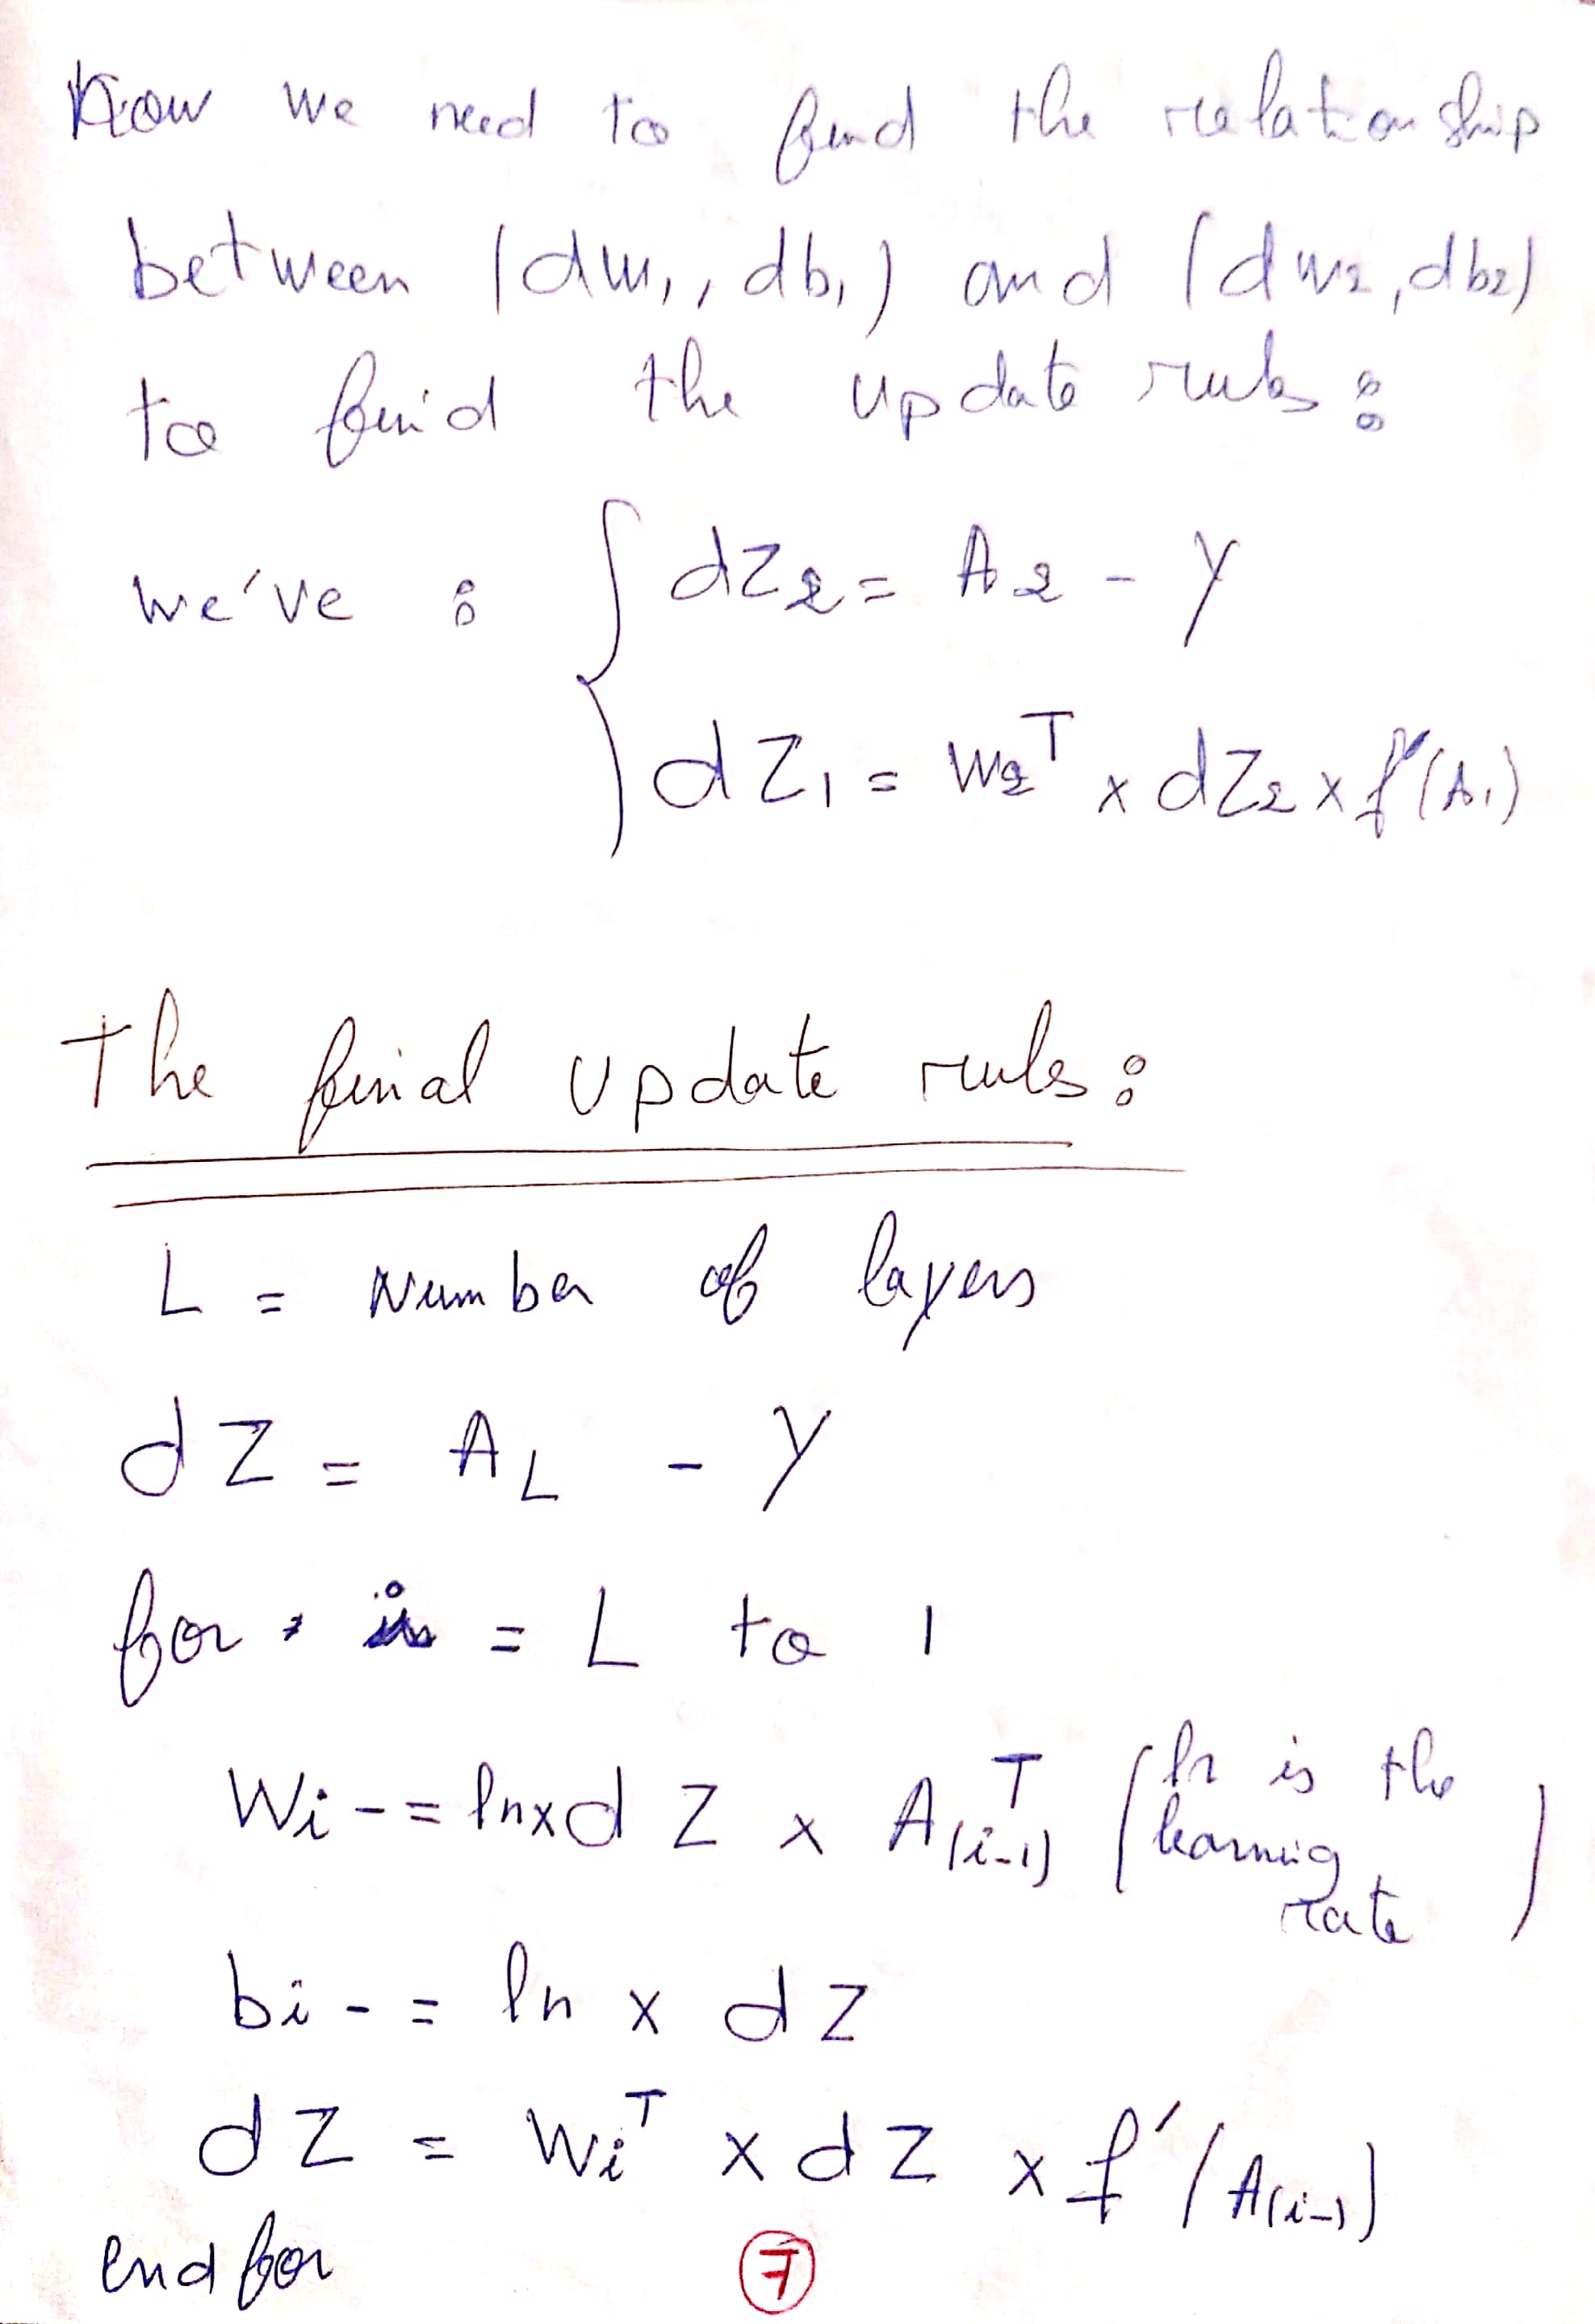 Now we need to find the relationship
between (dw1, db1) and (dw2, db2)
to find the update rules :
we've : { dZ2 = A2 - Y
dZ1 = W2^T x dZ2 x f'(A1)
The final update rules :
L = Number of layers
dZ = AL - Y
for i = L to 1
Wi -= lr x dZ x A(i-1)^T (lr is the
learning
rate)
bi -= lr x dZ
dZ = Wi^T x dZ x f'(A(i-1))
end for
7